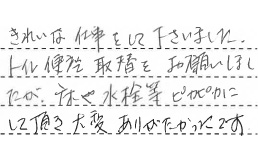 きれいな仕事をして下さいました。
トイレ便座取替をお願いしまし
たが、床や水栓等ピカピカに
して頂き大変ありがたかったです